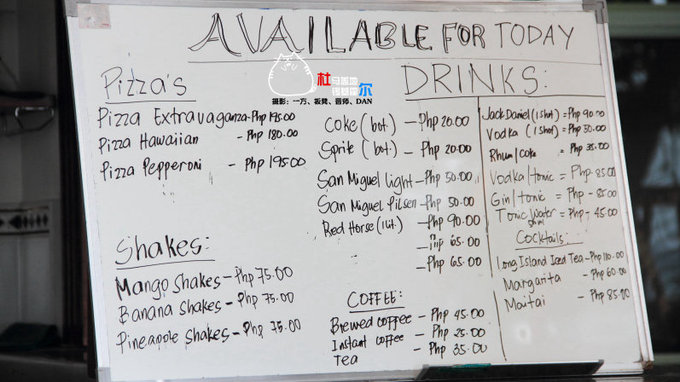 AVAILABLE FOR TODAY
Pizza's
Pizza Extravaganza-Php 195.00
Pizza Hawaiian - Php 180.00
Pizza Pepperoni - Php 195.00
Shakes:
Mango Shakes - Php 75.00
Banana Shakes - Php 75.00
Pineapple Shakes - Php 75.00
DRINKS:
Coke (bot.) - Php 20.00
Sprite (bot.) - Php 20.00
San Miguel Light - Php 50.00
San Miguel Pilsen - Php 50.00
Red Horse (1lit.) - Php 90.00
- Php 65.00
- Php 65.00
COFFEE:
Brewed coffee - Php 45.00
Instant coffee - Php 25.00
Tea - Php 35.00
Jack Daniel (1 shot) = Php 90.00
Vodka (1 shot) = Php 50.00
Rhum/Coke = Php 35.00
Vodka/tonic = Php - 85.00
Gin/tonic = Php - 85.00
Tonic Water = Php - 45.00
Cocktails:
Long Island Iced Tea - Php 110.00
Margarita - Php 60.00
Maitai - Php 85.00
杜
尔
摄影：一方、板凳、音师、DAN